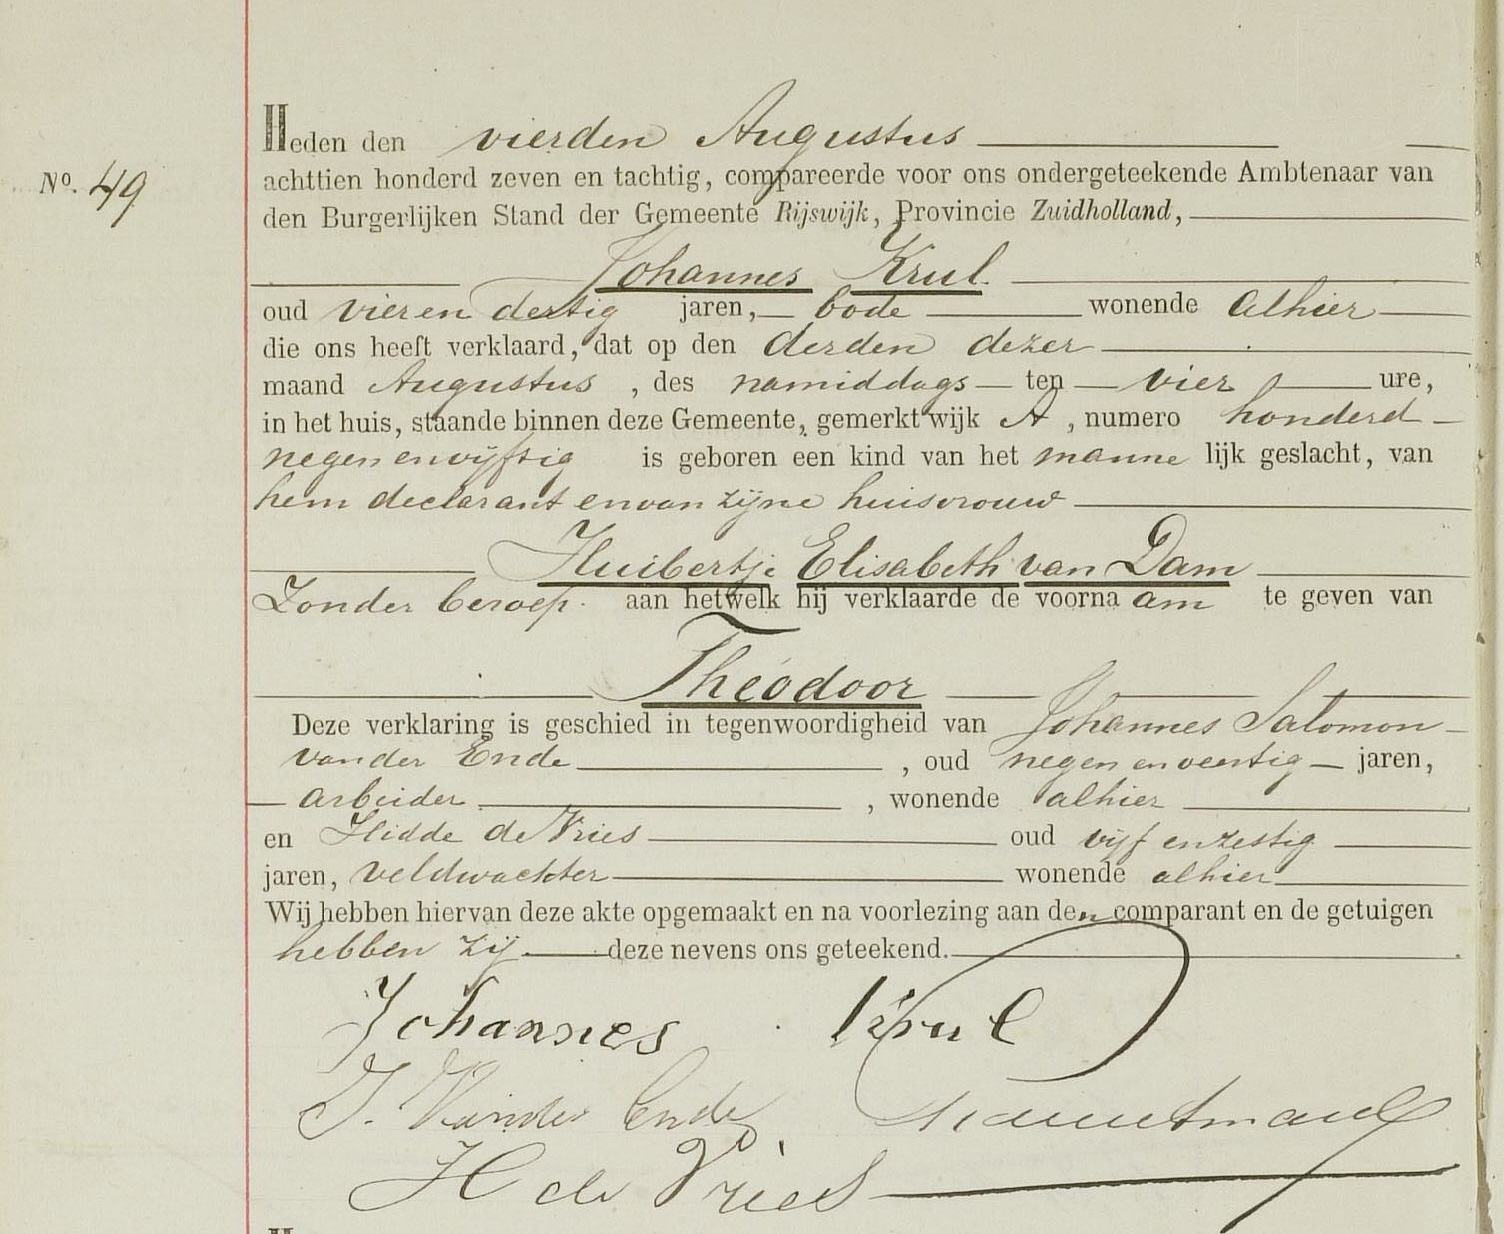 Heden den vierden Augustus
No. 49
achttien honderd zeven en tachtig, compareerde voor ons ondergeteekende Ambtenaar van
den Burgerlijken Stand der Gemeente Rijswijk, Provincie Zuidholland,
Johannes Krul.
oud vier en dertig jaren, bode wonende alhier
die ons heeft verklaard, dat op den derden dezer
maand Augustus, des namiddags ten vier ure,
in het huis, staande binnen deze Gemeente, gemerkt wijk A, numero honderd
negen en vijftig is geboren een kind van het mannelijk geslacht, van
hem declarant en van zijne huisvrouw
Huibertje Elisabeth van Dam
Zonder beroep. aan hetwelk hij verklaarde de voornaam te geven van
Theodoor
Deze verklaring is geschied in tegenwoordigheid van Johannes Salomon
van der Ende, oud negen en veertig jaren,
arbeider, wonende alhier
en Hidde de Vries oud vijf en zestig
jaren, veldwachter wonende alhier
Wij hebben hiervan deze akte opgemaakt en na voorlezing aan den comparant en de getuigen
hebben zij deze nevens ons geteekend.
Johannes Krul
J. Vander Ende
H de Vries